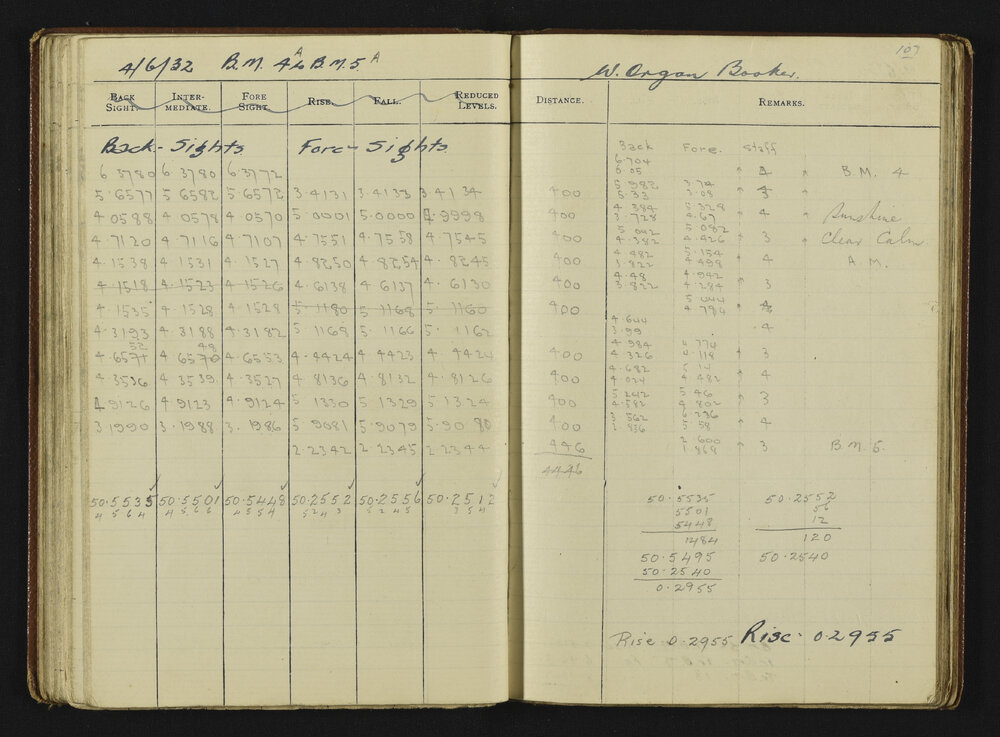 107
4/6/32 B.M. 4A to B.M. 5A
W. Organ Booker.
BACK SIGHT. INTER-MEDIATE. FORE SIGHT. RISE. FALL. REDUCED LEVELS. DISTANCE. REMARKS.
Back-Sights Fore-Sights
Back Fore. Staff
6.704
6 3780 6 3780 6 3772 6.05 4 B.M. 4
5.982 3.74
5.6577 5 6582 5 6572 3.4131 3.4133 3 4134 400 5.33 3.08 3
4.384 5.328
4 0588 4 0578 4 0570 5.0001 5.0000 4.9998 400 3.728 4.67 4 Sunshine
5.042 5.082
4.7120 4 7116 4 7107 4.7551 4.7558 4.7545 400 4.382 4.426 3 Clear Calm
4.482 5.154
4.1538 4.1531 4.1527 4.8250 4.8254 4.8245 400 3.822 4.498 4 A.M.
4.48 4.942
4.1518 4.1523 4.1526 4.6138 4 6137 4.6130 400 3.822 4.284 3
5.444
4.1535 4.1528 4.1528 5.1180 5 1168 5.1160 400 4.784
4.644
4.3193 4.3188 4.3182 5.1169 5.1166 5.1162 3.99 4
52 48
4.984 4.774
4.6571 4.6570 4.6553 4.4424 4.4423 4.4424 400 4.326 4.118 3
4.682 5.14
4.3536 4.3539 4.3527 4.8136 4.8132 4.8126 400 4.024 4.482 4
5.242 5.46
4 9126 4.9123 4.9124 5.1330 5.1329 5.1324 400 4.582 4.802 3
3.562 6.236
3 1990 3.1988 3.1986 5 9081 5.9079 5.9080 400 5.58 4
2.600
2.2342 2 2345 2 2344 446 1.868 3 B.M. 5.
4446
50.5535 50.5501 50.5448 50.2552 50.2556 50.2512
4 5 6 4 4 5 6 6 4 5 5 4 5 2 4 3 5 2 4 5 3 5 4
50.5535 50.2552
5501 56
5448 12
1484 120
50.5495 50.2540
50.2540
0.2955
Rise 0.2955 Rise 0.2955